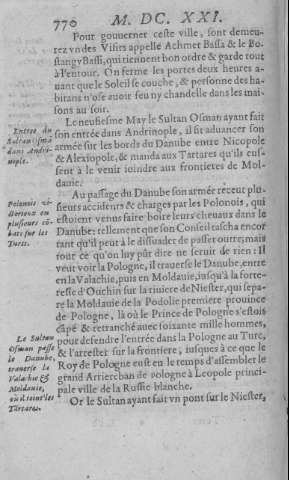 770 M. DC. XXI.
Pour gouverner ceste ville, sont demeu-
rez vn des Visirs appellé Achmet Bassa & le Bo-
stangy Bassi, qui tiennent bon ordre & garde tout
à l'entour. On ferme les portes deux heures a-
uant que le Soleil se couche, & personne des ha-
bitans n'ose auoir feu ny chandelle dans les mai-
sons au soir.
Entree du
Sultan Osman
dans Andri-
nople.
Le neufiesme May le Sultan Osman ayant fait
son entrée dans Andrinople, il fit aduancer son
armée sur les bords du Danube entre Nicopole
& Alexiopole, & manda aux Tartares qu'ils eus-
sent à le venir ioindre aux frontieres de Mol-
danie.
Polonois vi-
ctorieux en
plusieurs cõ-
bats sur les
Turcs.
Au passage du Danube son armée receut plu-
sieurs accidents & charges par les Polonois, qui
estoient venus faire boire leurs cheuaux dans le
Danube: tellement que son Conseil tascha encor
tant qu'il peut à le dissuader de passer outre; mais
tout ce qu'on luy pût dire ne seruit de rien: Il
veut voir la Pologne, il trauerse le Danube, entre
en la Valachie, puis en Moldauie, iusqu'à la forte-
resse d'Ouchin sur la riuiere de Niester, qui sepa-
re la Moldauie de la Podolie premiere prouince
de Pologne, là où le Prince de Pologne s'estoit
cãpé & retranché auec soixante mille hommes,
pour defendre l'entrée dans la Pologne au Turc,
& l'arrester sur la frontiere; iusques à ce que le
Roy de Pologne eust eu le temps d'assembler le
grand Arriereban de Pologne à Leopole princi-
pale ville de la Russie blanche.
Le Sultan
Osman passe
le Danube,
trauerse la
Valachie &
Moldauie,
où il ioint les
Tartares.
Or le Sultan ayant fait vn pont sur le Niester,